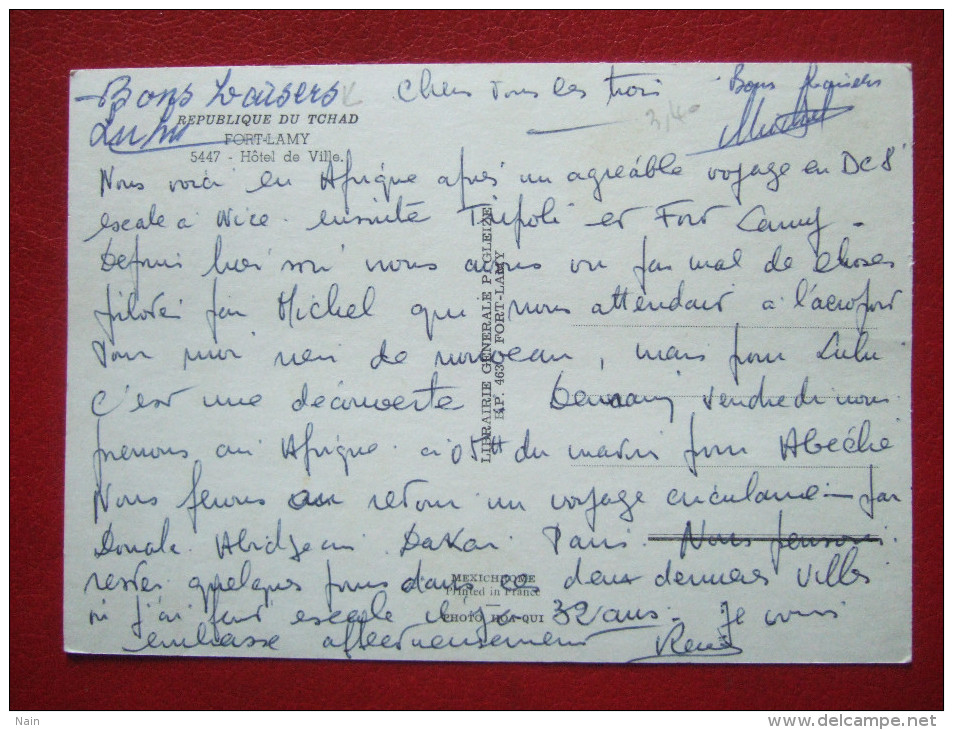 Bons baisers Chers vous les trois Bons baisers
Lulu 3,40 Michel
REPUBLIQUE DU TCHAD
FORT-LAMY
5447 - Hôtel de Ville.
Nous voici en Afrique après un agréable voyage en DC8
escale à Nice. ensuite Tripoli et Fort Lamy -
Depuis hier soir nous avons vu pas mal de choses
pilotés par Michel qui nous attendait à l'aeroport
Pour moi rien de nouveau, mais pour Lulu
c'est une découverte Demain vendredi nous
prenons air Afrique à 05H du matin pour Abéché
Nous ferons au retour un voyage circulaire par
Douala. Abidjean Dakar Paris. Nous pensons
rester quelques jours dans ces deux dernières villes
où j'ai fait escale il y a 32 ans. Je vous
embrasse affectueusement René
LIBRAIRIE GENERALE PAGLEIZE
B.P. 463 FORT-LAMY
MEXICHROME
Printed in France
PHOTO HOA-QUI
© Nain
http://www.delcampe.net